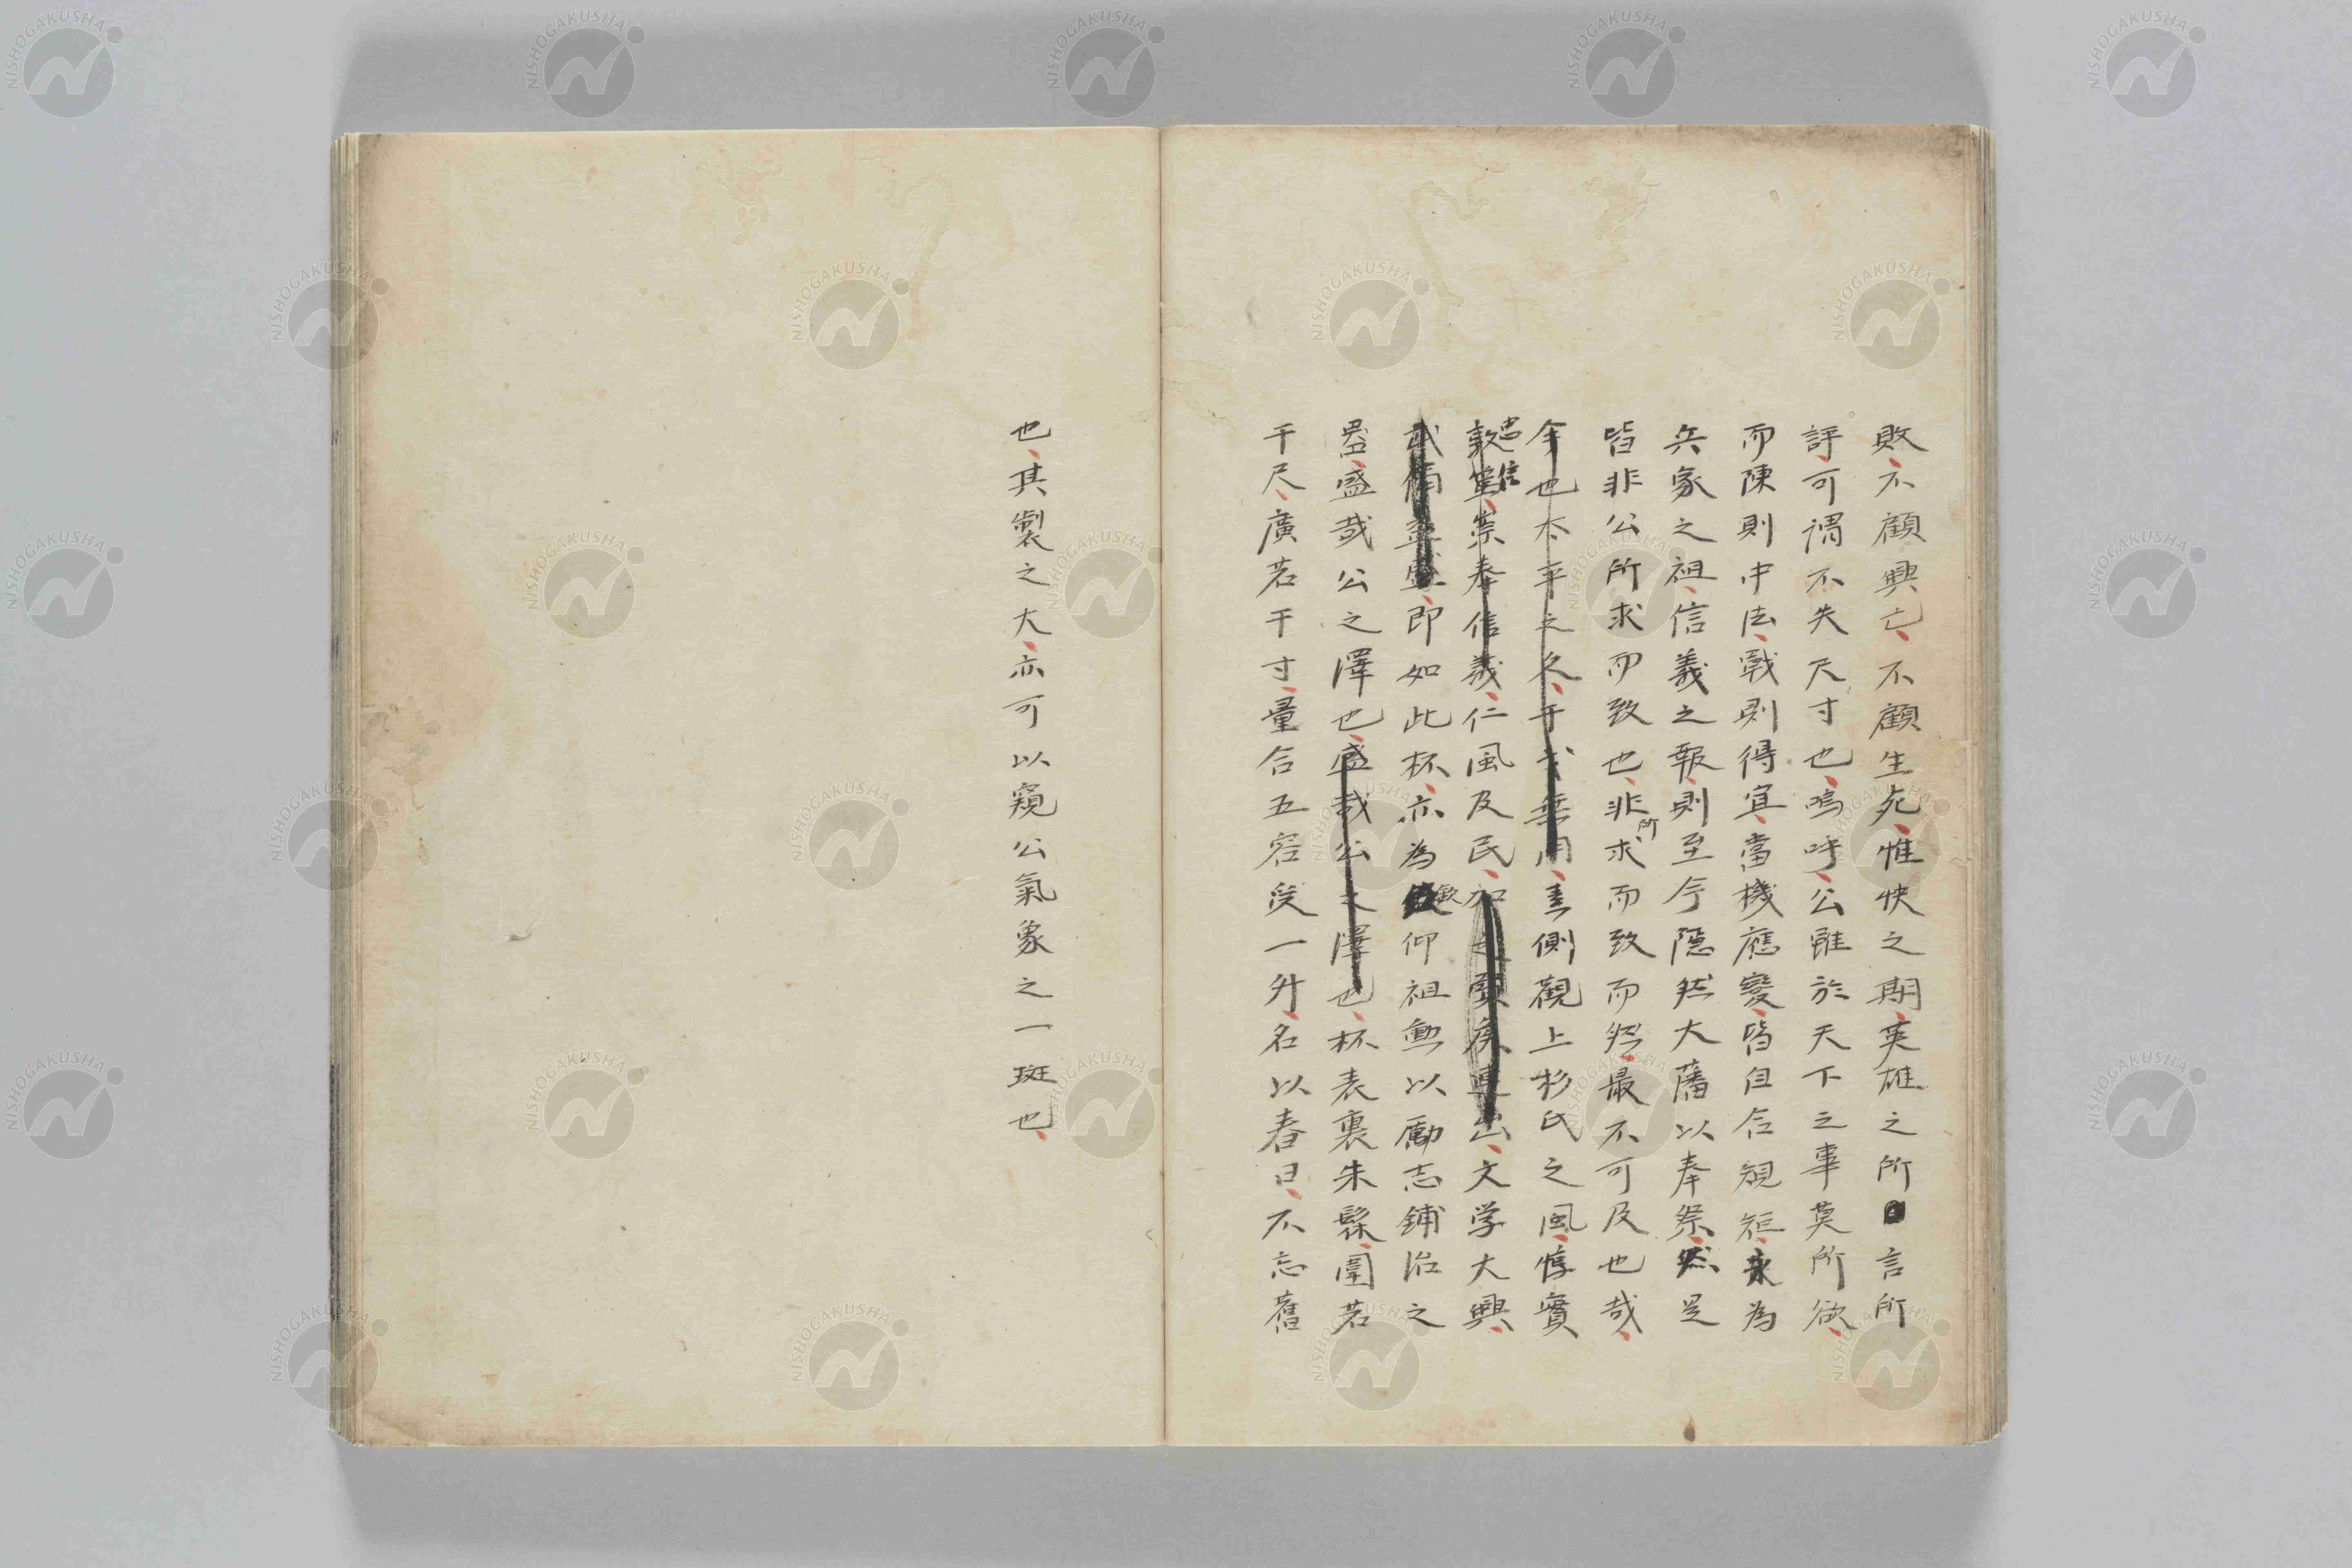 敗、不顧興亡、不顧生死、惟快之期、英雄之所言所
評、可謂不失尺寸也、嗚呼、公雖於天下之事莫所欲、
而陳則中法、戰則得宜、當機應變、皆自合規矩、永為
兵家之祖、信義之報、則至今隠然大藩以奉祭、然是
皆非公所求而致也、非所求而致而然、最不可及也哉、
今也太平之久、干戈無用、善側觀上杉氏之風、惇實
敦篤、忠信崇奉信義、仁風及民、加之賢疾連出、文学大興、
武備益盛、即如此杯、亦為欽仰祖勲以勵志鋪治之
器、盛哉公之澤也、盛哉公之澤也、杯表裏朱髹、圍若
干尺、廣若干寸、量合五容受一升、名以春日、不忘舊
也、其製之大、亦可以窺公氣象之一斑也、
NISHOGAKUSHA